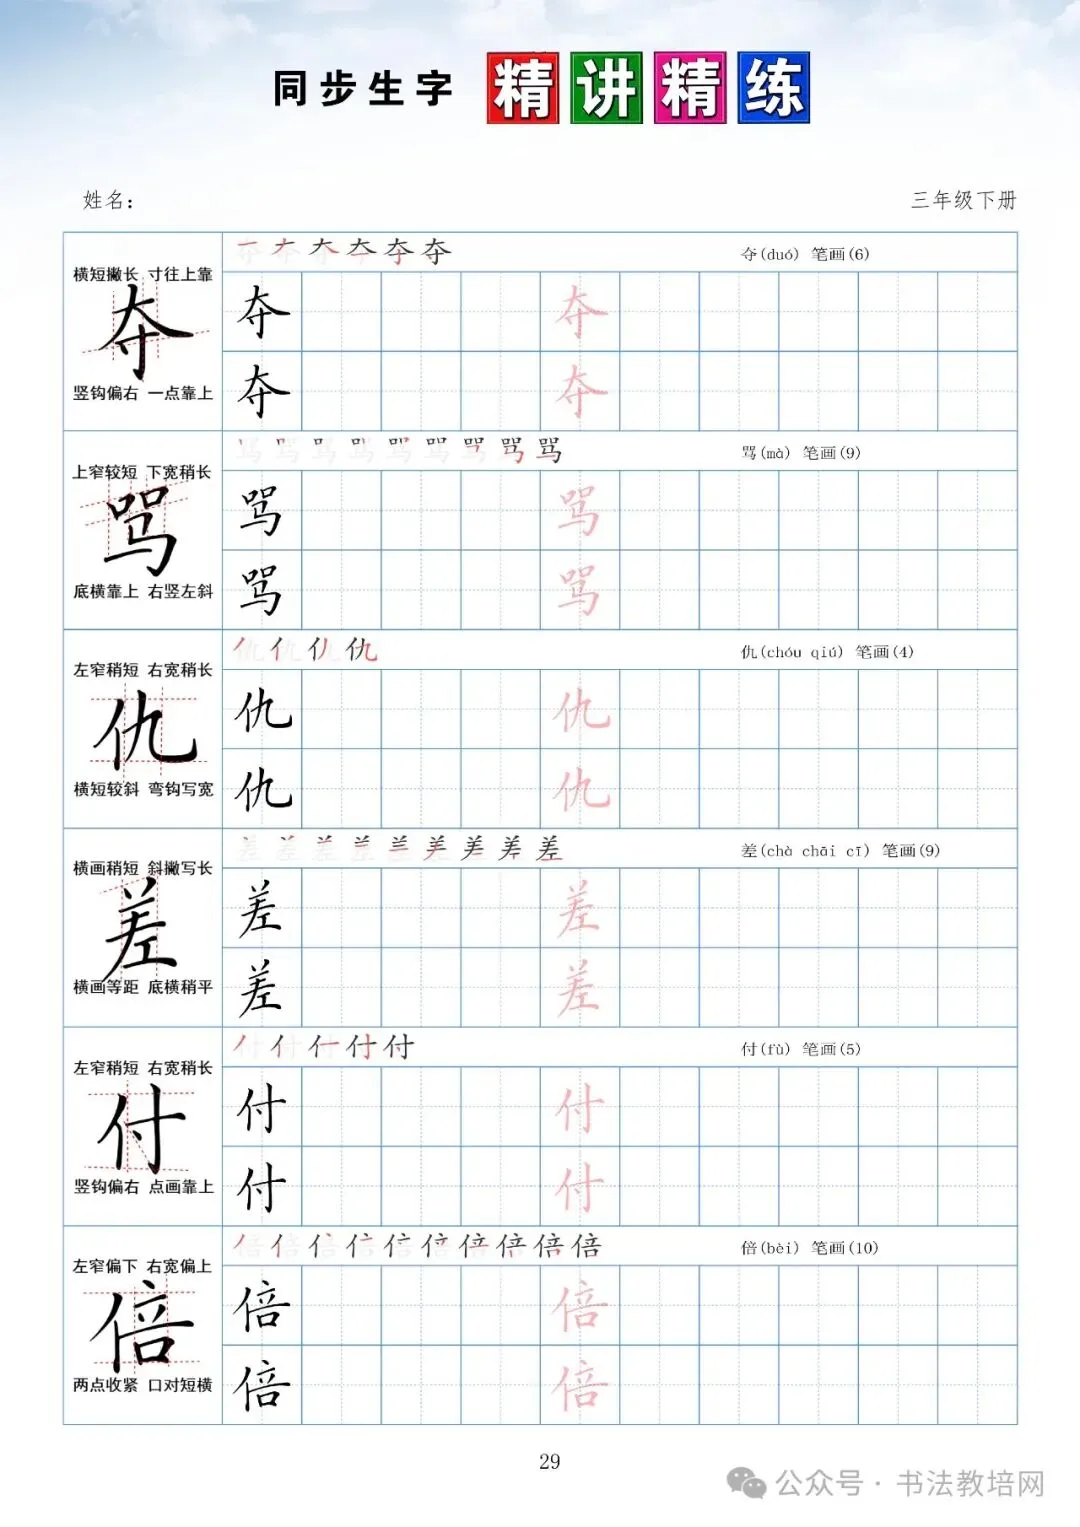 同步生字 精讲精练
姓名: 三年级下册
横短撇长 寸往上靠
夺
竖钩偏右 一点靠上
夺 夺 夺 夺 夺 夺 夺(duó) 笔画(6)
夺 夺
夺 夺
上窄较短 下宽稍长
骂
底横靠上 右竖左斜
骂 骂 骂 骂 骂 骂 骂 骂 骂 骂(mà) 笔画(9)
骂 骂
骂 骂
左窄稍短 右宽稍长
仇
横短较斜 弯钩写宽
仇 仇 仇 仇 仇(chóu qiú) 笔画(4)
仇 仇
仇 仇
横画稍短 斜撇写长
差
横画等距 底横稍平
差 差 差 差 差 差 差 差 差 差(chà chāi cī) 笔画(9)
差 差
差 差
左窄稍短 右宽稍长
付
竖钩偏右 点画靠上
付 付 付 付 付 付(fù) 笔画(5)
付 付
付 付
左窄偏下 右宽偏上
倍
两点收紧 口对短横
倍 倍 倍 倍 倍 倍 倍 倍 倍 倍 倍(bèi) 笔画(10)
倍 倍
倍 倍
29
公众号·书法教培网